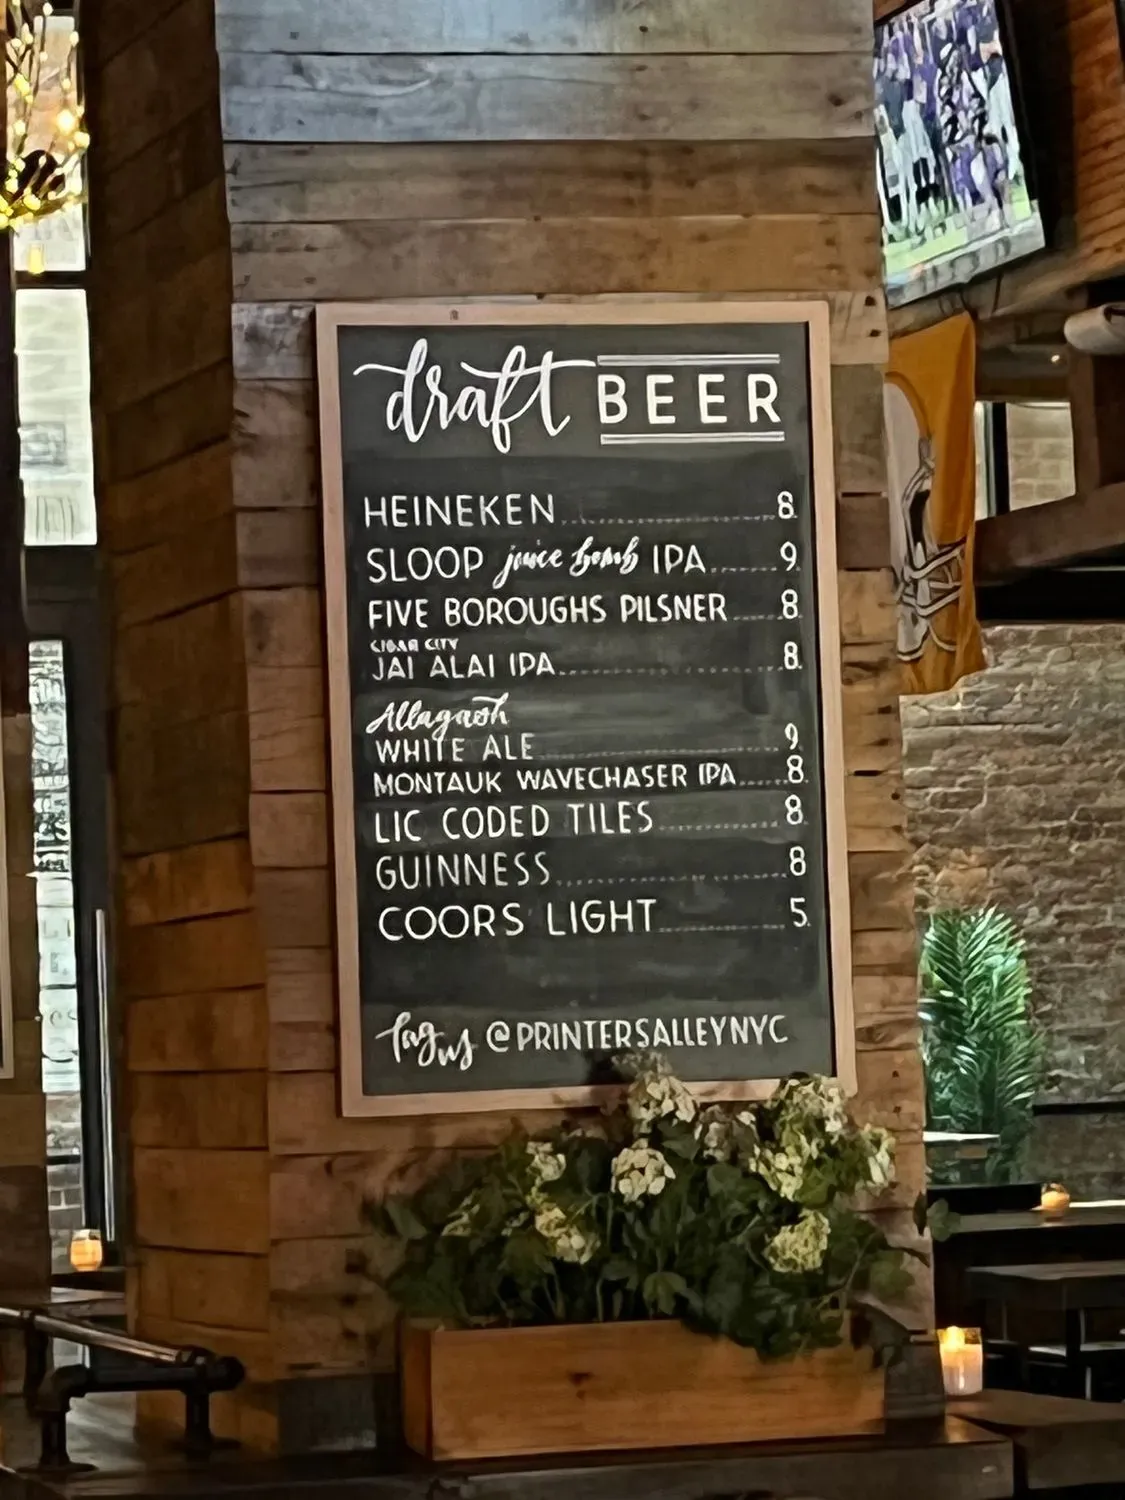 draft BEER
HEINEKEN 8.
SLOOP juice bomb IPA 9
FIVE BOROUGHS PILSNER 8.
CIGAR CITY
JAI ALAI IPA 8.
Allagash
WHITE ALE 9
MONTAUK WAVECHASER IPA 8.
LIC CODED TILES 8
GUINNESS 8
COORS LIGHT 5.
tag us @PRINTERSALLEYNYC